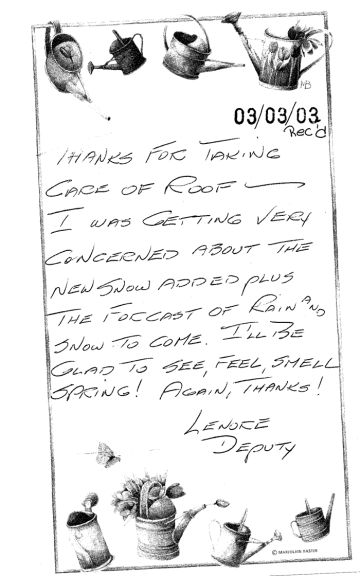 MB
03/03/03
Rec'd
THANKS FOR TAKING
CARE OF ROOF —
I WAS GETTING VERY
CONCERNED ABOUT THE
NEW SNOW ADDED PLUS
THE FORCAST OF RAIN AND
SNOW TO COME. I'LL BE
GLAD TO SEE, FEEL, SMELL
SPRING! AGAIN, THANKS!
LENORE
DEPUTY
© MARJOLEIN BASTIN